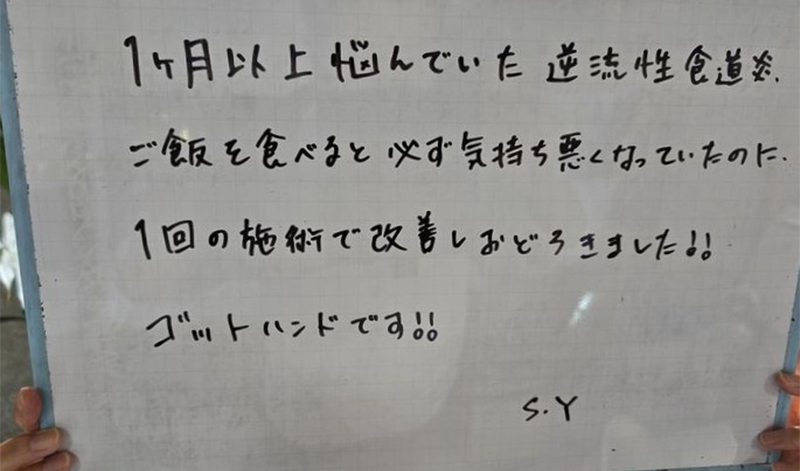 1ヶ月以上悩んでいた逆流性食道炎.
ご飯を食べると必ず気持ち悪くなっていたのに.
1回の施術で改善しおどろきました!!
ゴットハンドです!!
S.Y